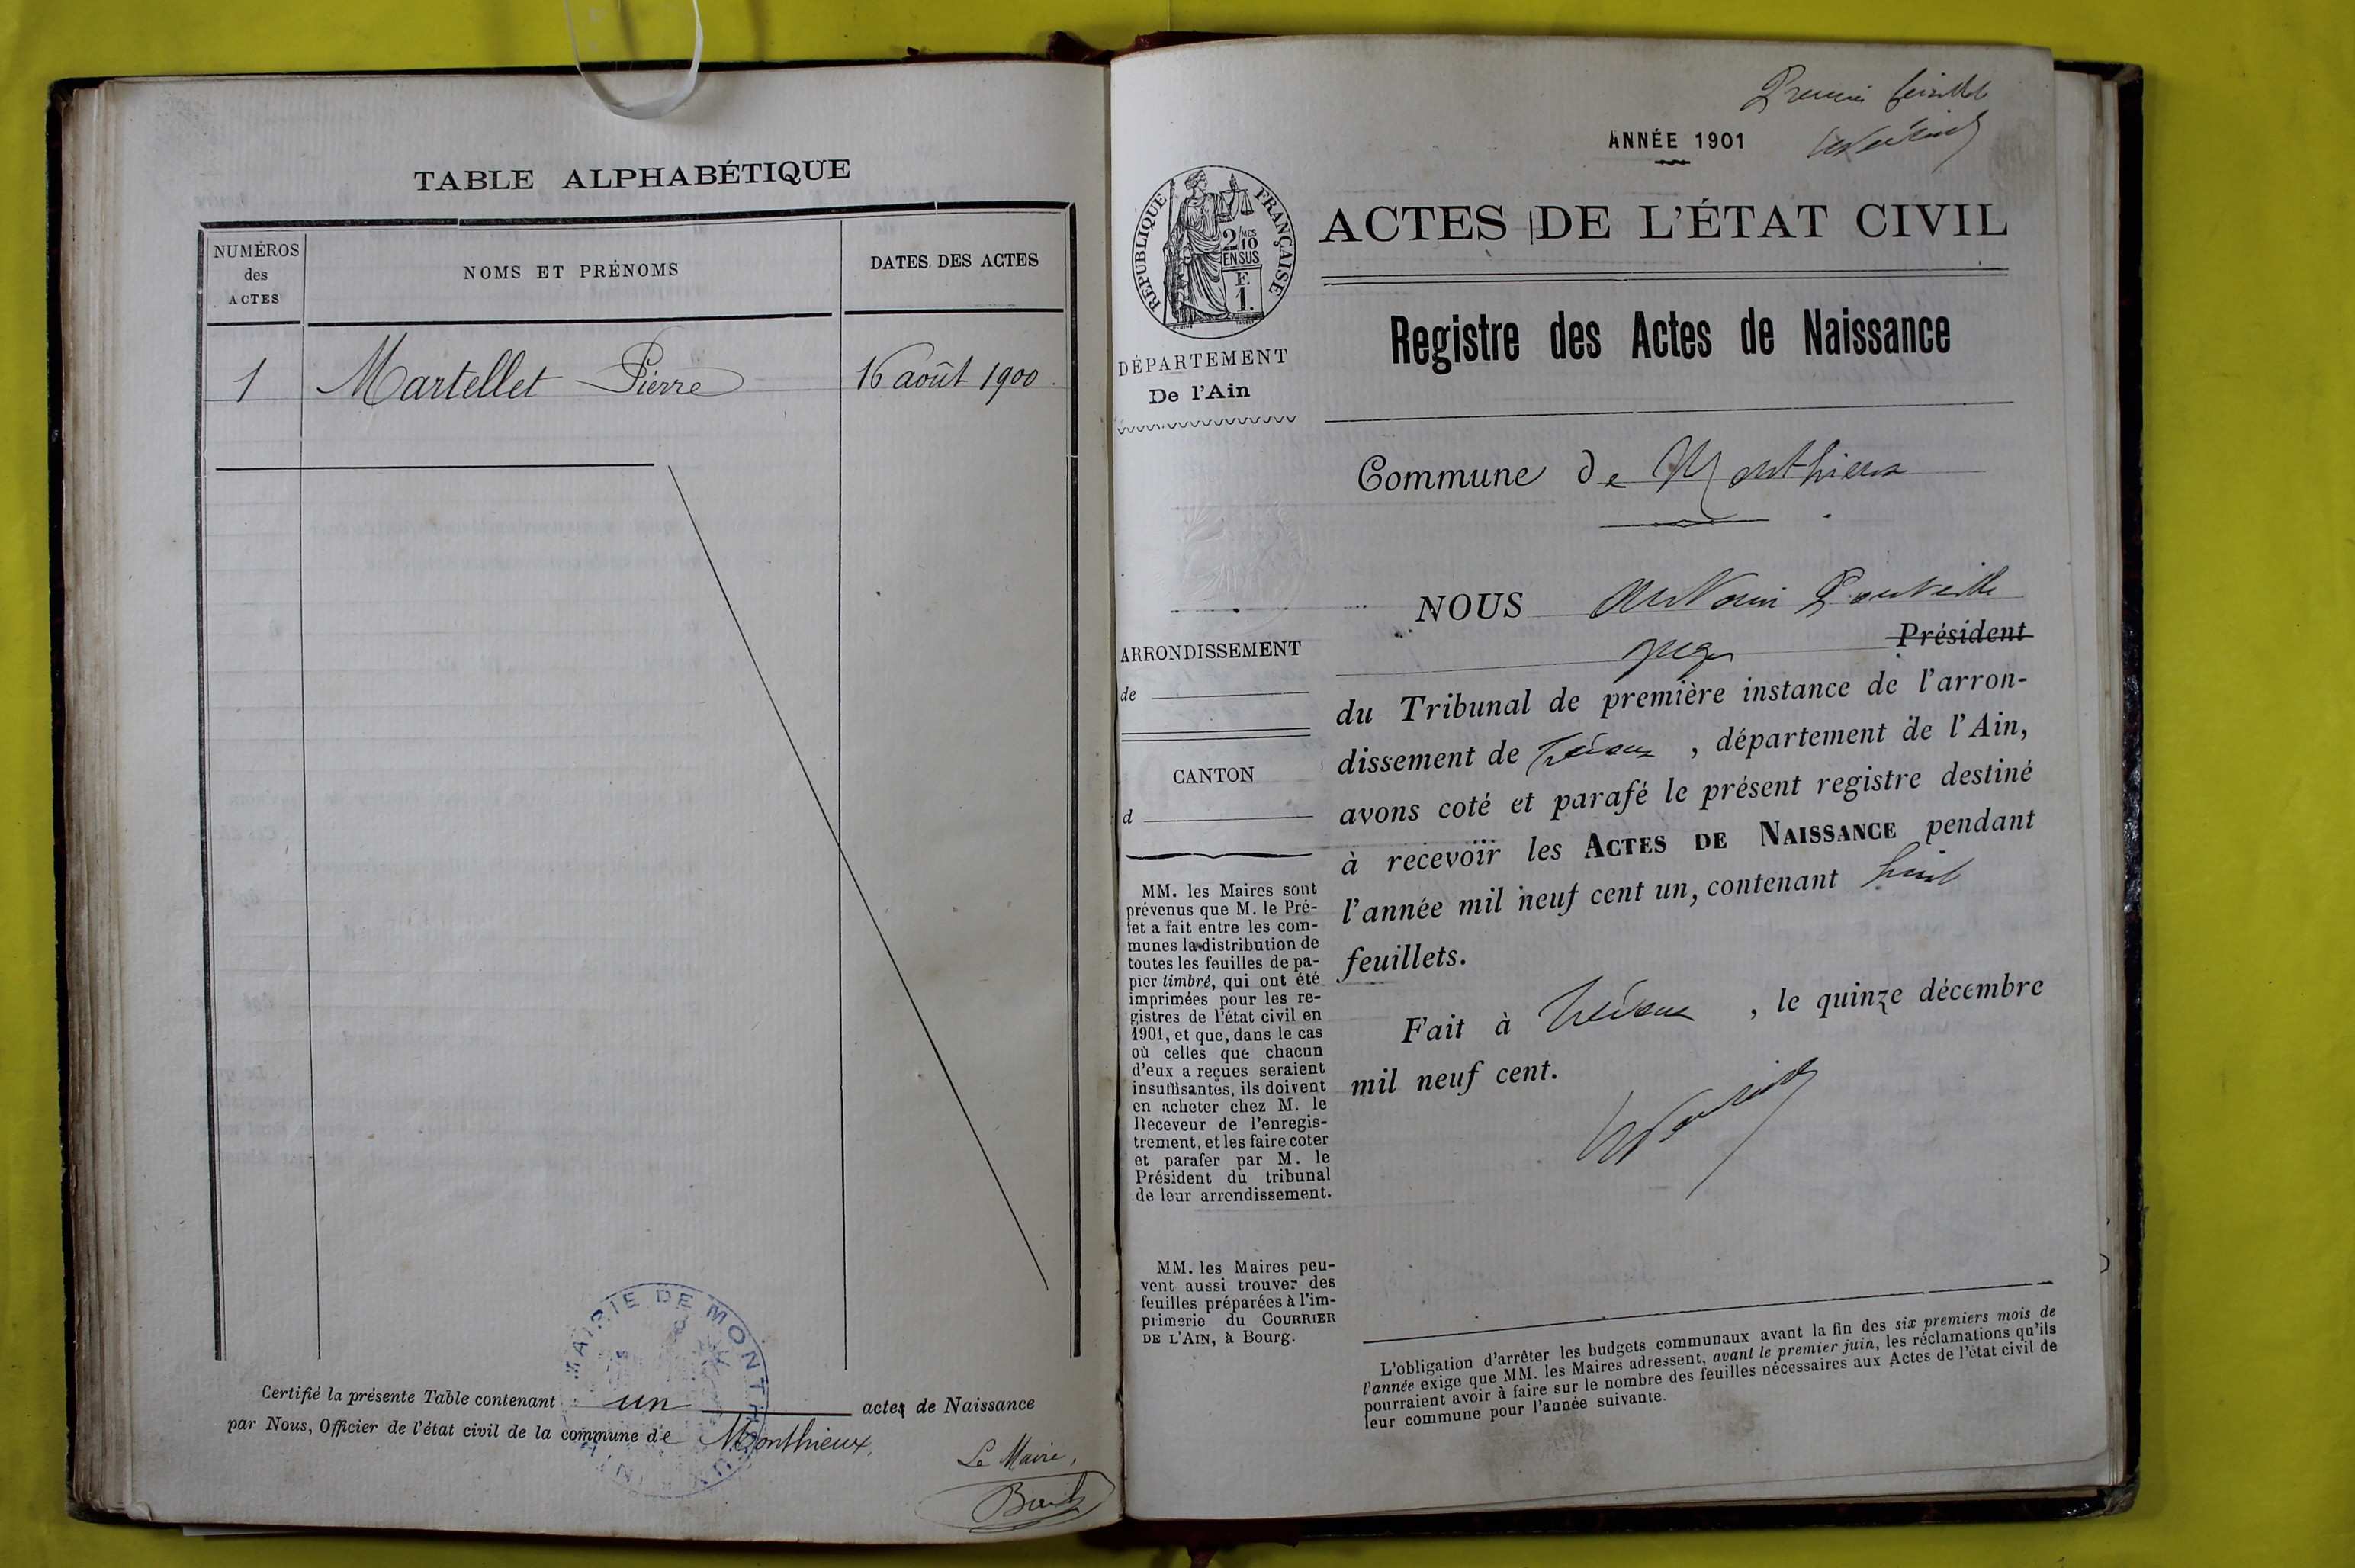 TABLE ALPHABÉTIQUE
NUMÉROS
des
ACTES
NOMS ET PRÉNOMS
DATES DES ACTES
1 Martellet Pierre 16 août 1900.
Certifié la présente Table contenant un actes de Naissance
par Nous, Officier de l'état civil de la commune de Monthieux.
MAIRIE DE MONTHIEUX
AIN
Le Maire,
Premier feuillet
ANNÉE 1901
RÉPUBLIQUE FRANÇAISE
2/MES
10
EN SUS
F.
1.
ACTES DE L'ÉTAT CIVIL
Registre des Actes de Naissance
DÉPARTEMENT
De l'Ain
Commune de Monthieux
NOUS Antonin
juge Président
du Tribunal de première instance de l'arron-
dissement de Trévoux, département de l'Ain,
avons coté et parafé le présent registre destiné
à recevoir les ACTES DE NAISSANCE pendant
l'année mil neuf cent un, contenant huit
feuillets.
Fait à Trévoux, le quinze décembre
mil neuf cent.
ARRONDISSEMENT
de
CANTON
d
MM. les Maires sont
prévenus que M. le Pré-
fet a fait entre les com-
munes la distribution de
toutes les feuilles de pa-
pier timbré, qui ont été
imprimées pour les re-
gistres de l'état civil en
1901, et que, dans le cas
où celles que chacun
d'eux a reçues seraient
insuffisantes, ils doivent
en acheter chez M. le
Receveur de l'enregis-
trement, et les faire coter
et parafer par M. le
Président du tribunal
de leur arrondissement.
MM. les Maires peu-
vent aussi trouver des
feuilles préparées à l'im-
primerie du COURRIER
DE L'AIN, à Bourg.
L'obligation d'arrêter les budgets communaux avant la fin des six premiers mois de
l'année exige que MM. les Maires adressent, avant le premier juin, les réclamations qu'ils
pourraient avoir à faire sur le nombre des feuilles nécessaires aux Actes de l'état civil de
leur commune pour l'année suivante.